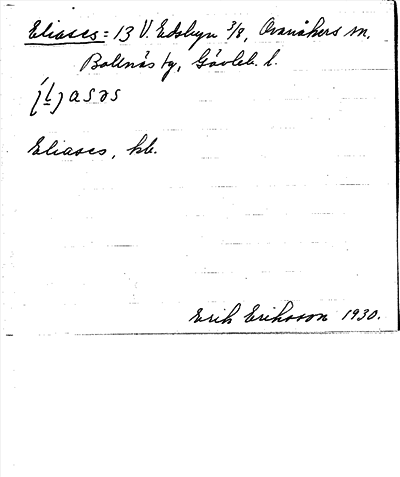 Eliases = 13 V. Edsbyn 3/8, Ovanåkers sn,
Bollnäs tg, Gävleb. l.
Eliases, kb.
Erik Eriksson 1930.